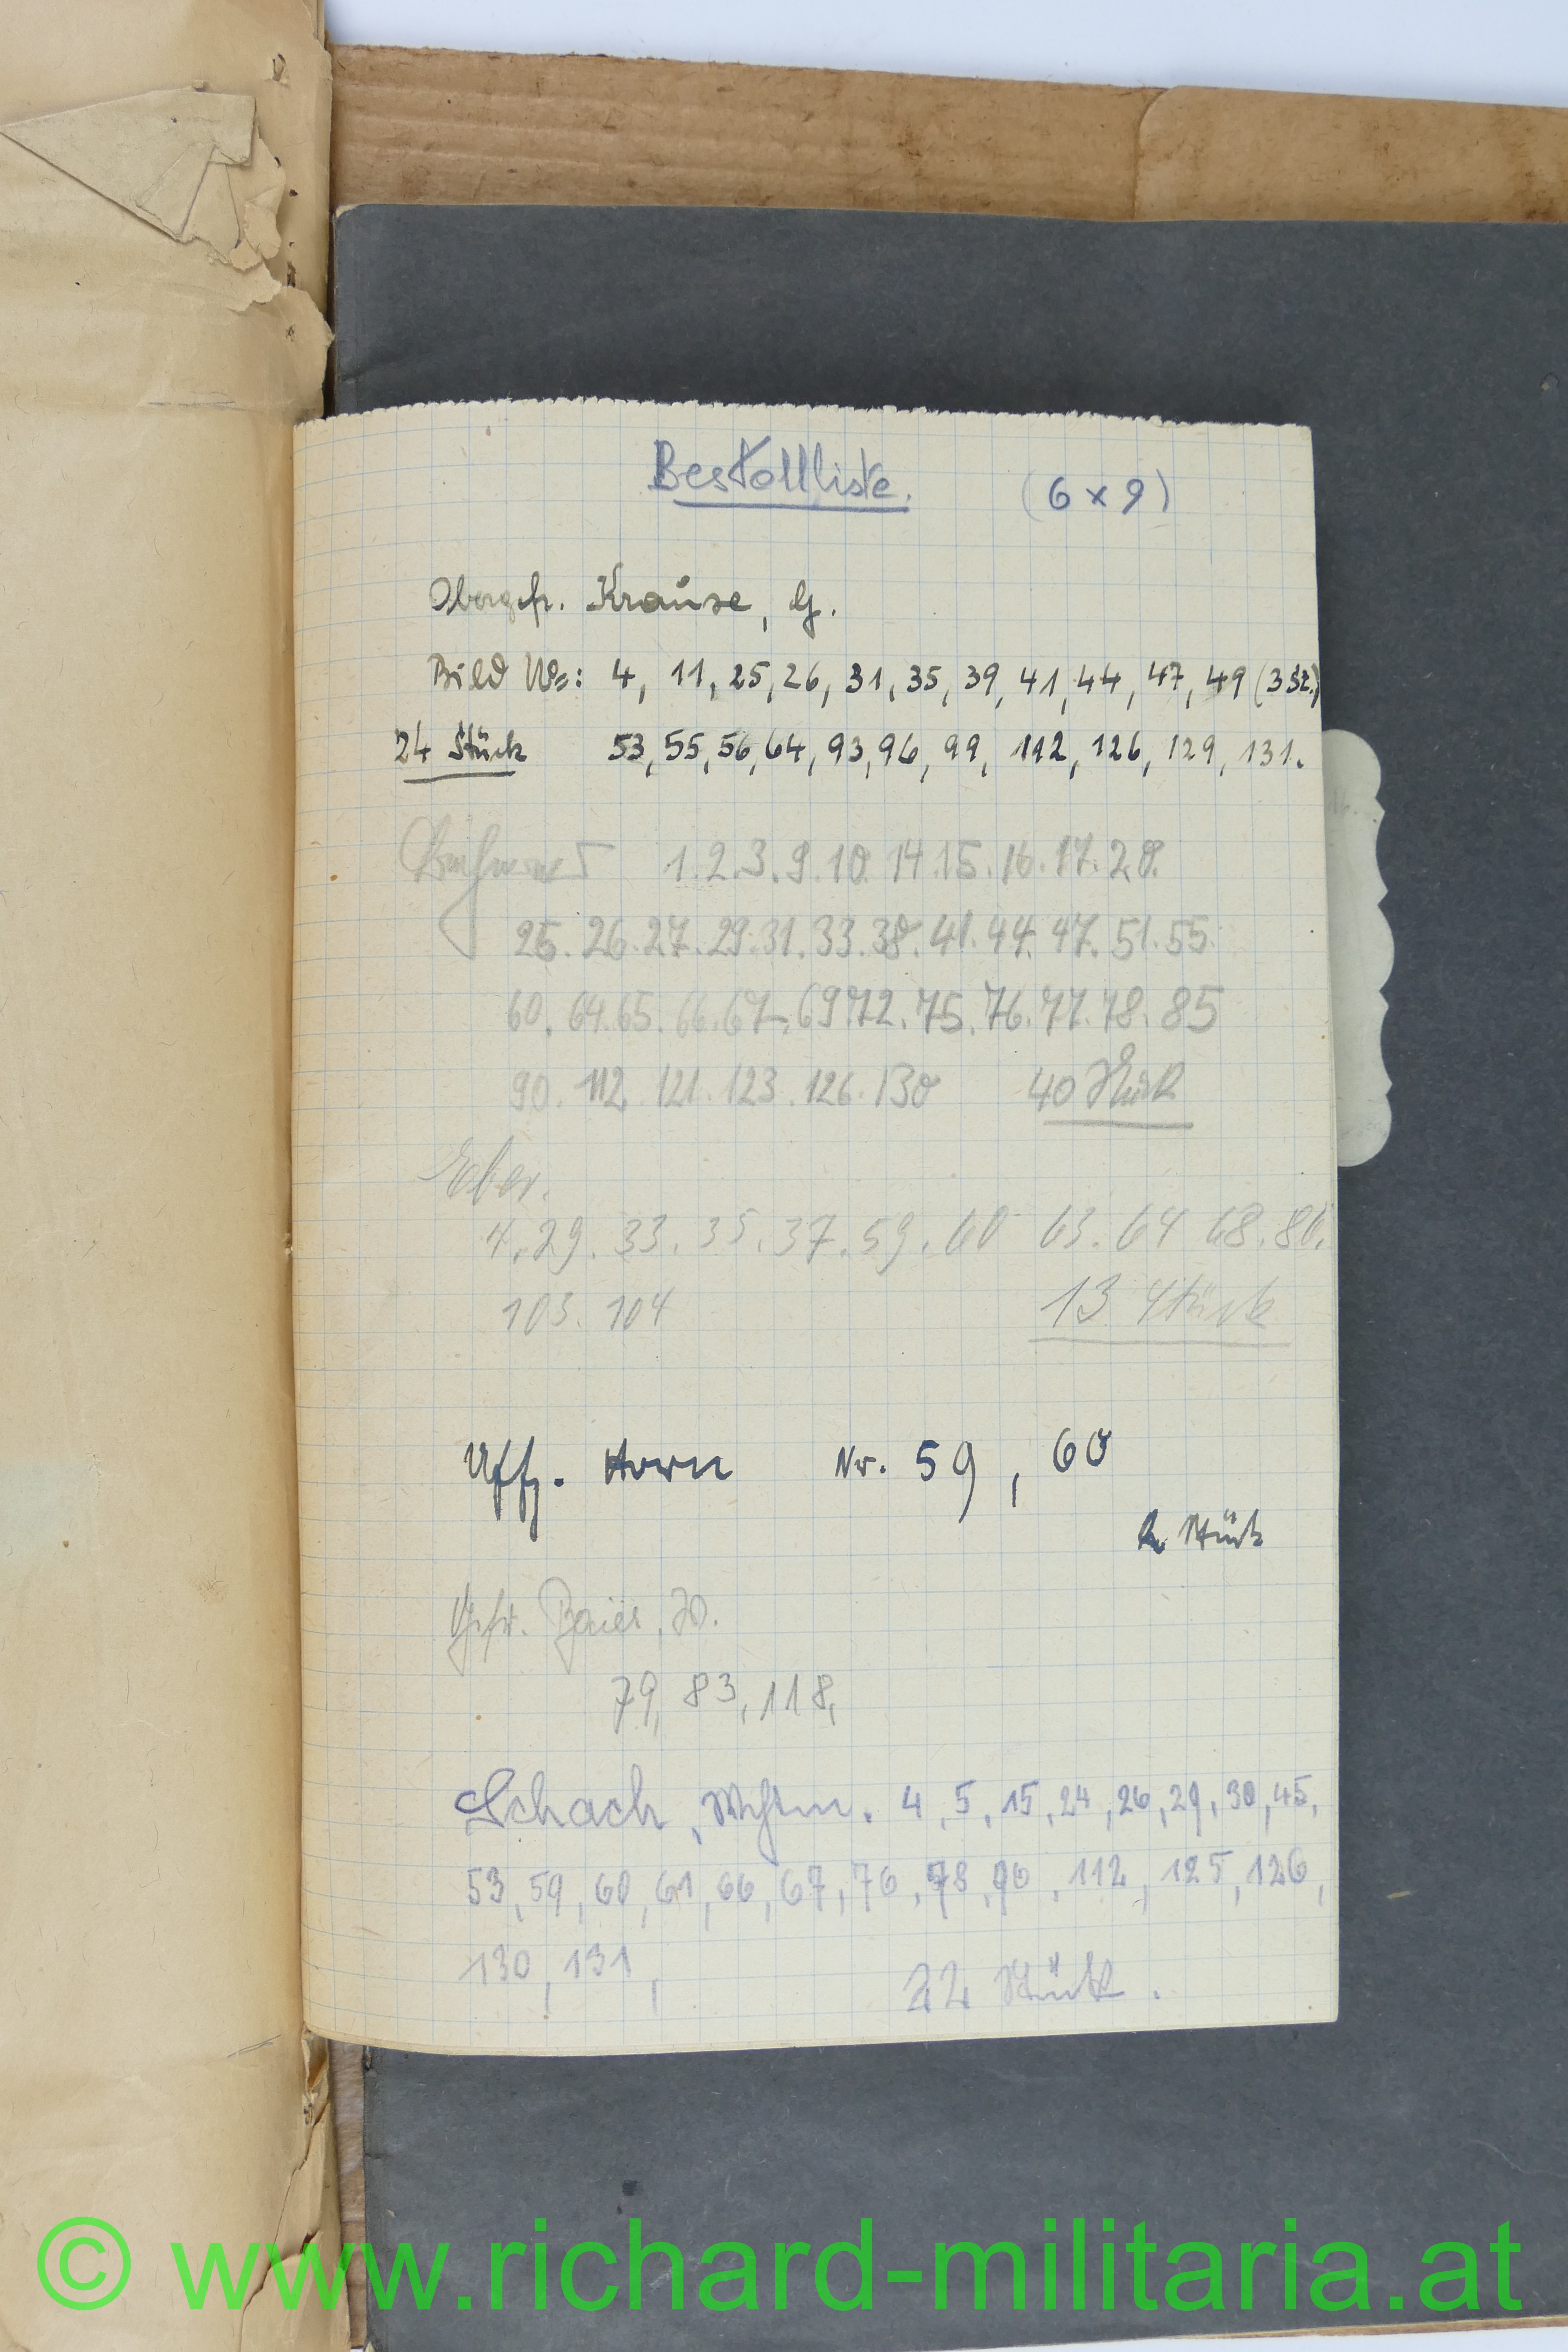 Bestellliste. (6 x 9)
Obergefr. Krause, G.
Bild No: 4, 11, 25, 26, 31, 35, 39, 41, 44, 47, 49 (3 St.)
24 Stück 53, 55, 56, 64, 93, 96, 99, 112, 126, 129, 131.
1. 2. 3. 9. 10. 14. 15. 16. 17. 20.
25. 26. 27. 29. 31. 33. 38. 41. 44. 47. 51. 55.
60. 64. 65. 66. 67. 69. 72. 75. 76. 77. 78. 85
90. 112. 121. 123. 126. 130 40 Stück
Eber.
4. 29. 33. 35. 37. 59. 60 63. 64 68. 86.
103. 104 13 Stück
Uffz. Horn Nr. 59, 60
2 Stück
Gefr. Baier,
79, 83, 118,
Schach, Wchtm. 4, 5, 15, 24, 26, 29, 30, 45,
53, 59, 60, 61, 66, 67, 76, 78, 90, 112, 125, 126,
130, 131, 22 Stück.
© www.richard-militaria.at